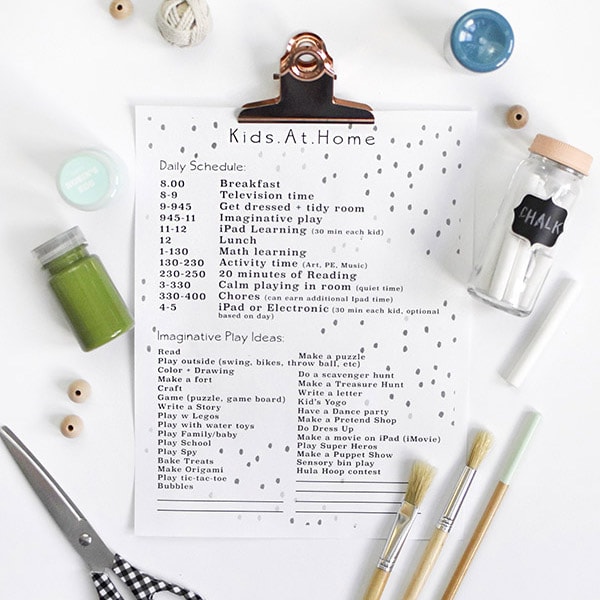 Kids.At.Home
Daily Schedule:
8.00 Breakfast
8-9 Television time
9-945 Get dressed + tidy room
945-11 Imaginative play
11-12 iPad Learning (30 min each kid)
12 Lunch
1-130 Math learning
130-230 Activity time (Art, PE, Music)
230-250 20 minutes of Reading
3-330 Calm playing in room (quiet time)
330-400 Chores (can earn additional Ipad time)
4-5 iPad or Electronic (30 min each kid, optional
based on day)
Imaginative Play Ideas:
Read
Play outside (swing, bikes, throw ball, etc)
Color + Drawing
Make a fort
Craft
Game (puzzle, game board)
Write a Story
Play w Legos
Play with water toys
Play Family/baby
Play School
Play Spy
Bake Treats
Make Origami
Play tic-tac-toe
Bubbles
Make a puzzle
Do a scavenger hunt
Make a Treasure Hunt
Write a letter
Kid's Yogo
Have a Dance party
Make a Pretend Shop
Do Dress Up
Make a movie on iPad (iMovie)
Play Super Heros
Make a Puppet Show
Sensory bin play
Hula Hoop contest
CHALK
ROBIN'S
EGG